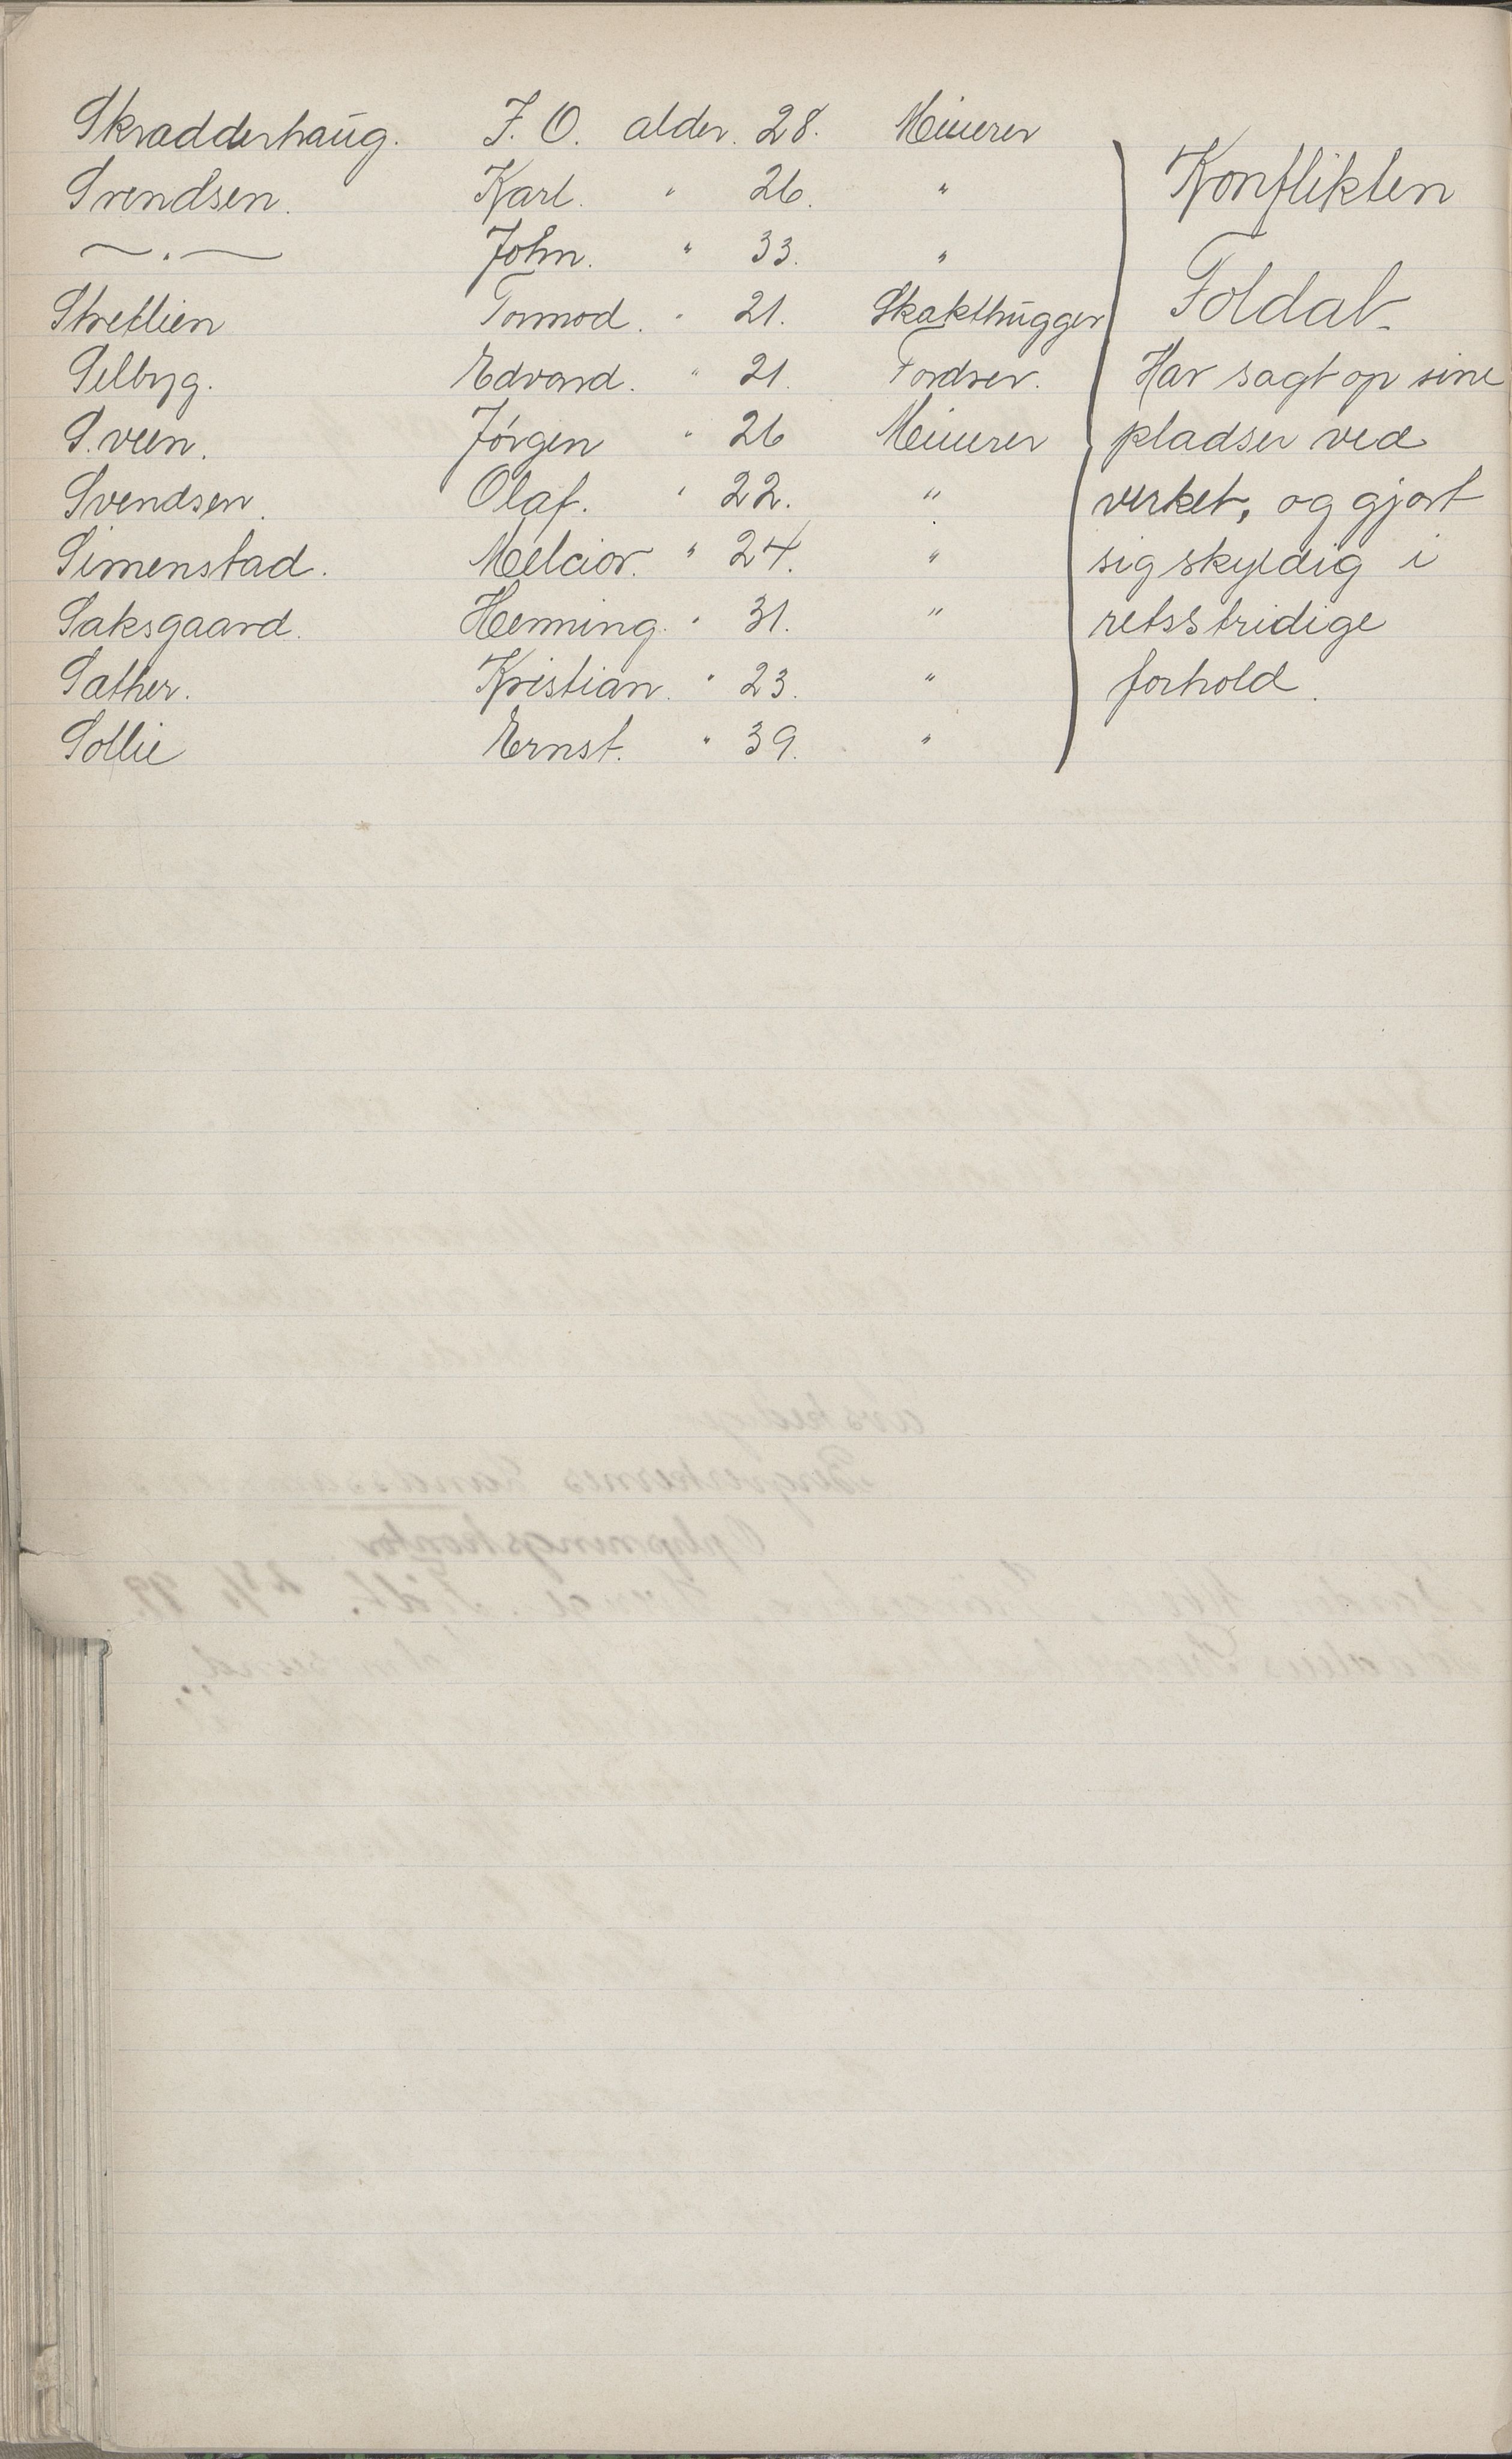 Skradderhaug. J. O. alder. 28. Minerer
Svendsen. Karl. " 26. "
—"— John. " 33. "
Stretlien Tormod. " 21. Skakthugger
Selbyg. Edvard. " 21. Fordrer.
Sveen. Jørgen " 26 Minerer
Svendsen. Olaf. " 22. "
Simenstad. Melcior. " 24. "
Saksgaard. Henning. " 31. "
Sather. Kristian. " 23. "
Sollie Ernst. " 39. "
Konflikten
Foldal.
Har sagt op sine
pladser ved
verket, og gjort
sig skyldig i
retsstridige
forhold.